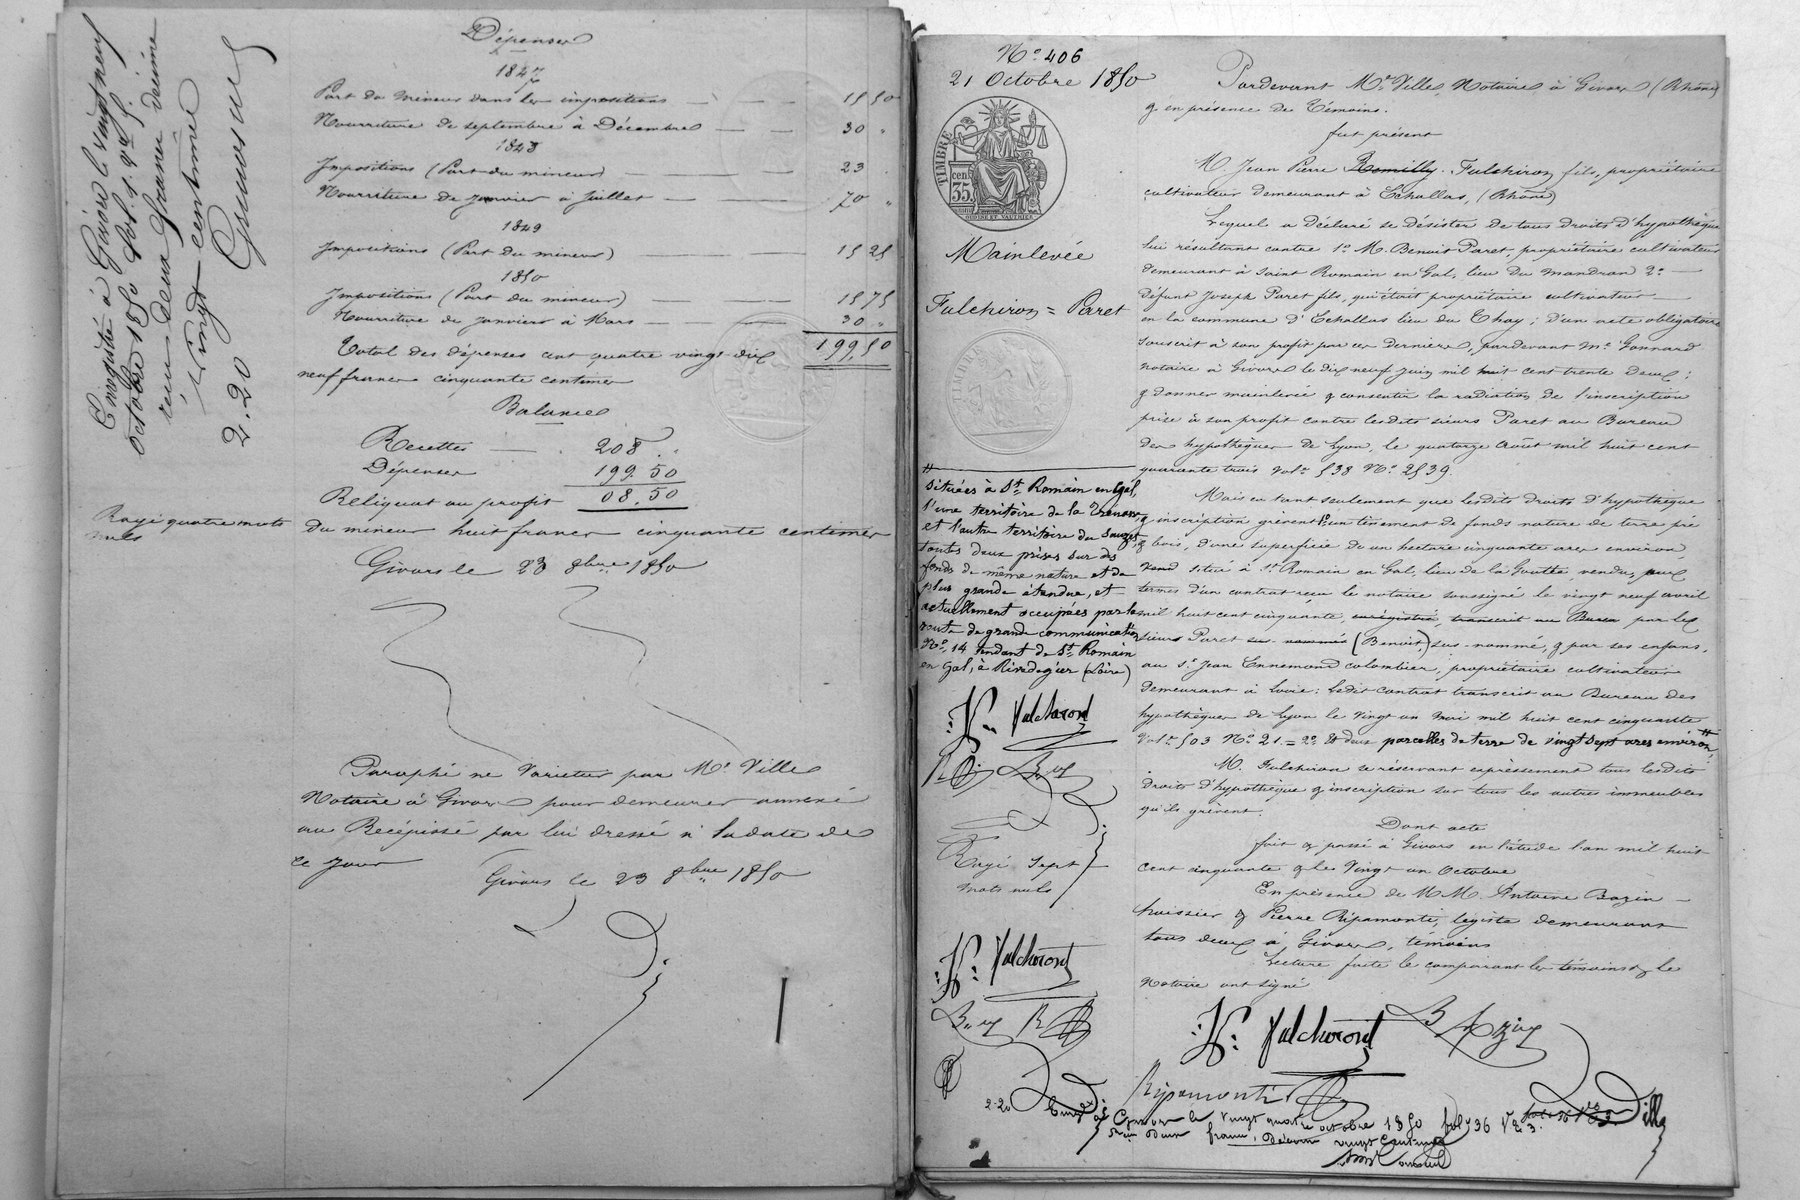 Dépenses
1847
Part du mineur dans les impositions — 15 50
Nourriture de septembre à Décembre — 30 "
1848
Impositions (Part du mineur) — 23 "
Nourriture de janvier à Juillet — 70 "
1849
Impositions (Part du mineur) — 15 25
1850
Impositions (Part du mineur) — 15 75
Nourriture de janvier à Mars — 30 "
Total des dépenses cent quatre vingt dix 199,50
neuf francs cinquante centimes
Balance
Recettes — 208 "
Dépenses 199.50
Reliquat au profit 08.50
du mineur huit francs cinquante centimes
Givors le 23 8bre 1850
Paraphé ne varietur par Me Ville
Notaire à Givors pour demeurer annexé
au Récépissé par lui dressé à la date de
ce jour
Givors le 23 8bre 1850
Enregistré à Givors le vingt neuf
octobre 1850
reçu deux francs décime
vingt centimes
2.20
Rayé quatre mots
nuls
No 406
21 Octobre 1850
TIMBRE
35 cent
Mainlevée
Fulchiron = Paret
Pardevant Me Ville Notaire à Givors (Rhône)
& en présence de Témoins.
fut présent
M. Jean Pierre Romilly Fulchiron fils, propriétaire
cultivateur demeurant à Echallas, (Rhône)
Lequel a déclaré se désister de tous droits d'hypothèque
lui résultant contre 1o M. Benoit Paret, propriétaire cultivateur
demeurant à Saint Romain en Gal, lieu du Mandran 2o —
Défunt Joseph Paret fils, qui était propriétaire cultivateur —
en la commune d'Echallas lieu du Thay; d'un acte obligatoire
souscrit à son profit par ces derniers, pardevant Me Gonnard
notaire à Givors le dix neuf Juin mil huit cent trente deux;
& donner mainlevée & consentir la radiation de l'inscription
prise à son profit contre lesdits sieurs Paret au Bureau
des hypothèques de Lyon, le quatorze Août mil huit cent
quarante trois vole 538 No 2539.
Mais en tant seulement que lesdits droits d'hypothèque
& inscription grèvent 1o un tènement de fonds nature de terre pré
& bois, d'une superficie de un hectare cinquante ares environ,
situé à St Romain en Gal, lieu de la Goutte, vendu, aux
termes d'un contrat reçu le notaire soussigné le vingt neuf avril
mil huit cent cinquante, enregistré, transcrit au Bureau par les
sieurs Paret sus nommés (Benoit,) sus-nommé, & par ses enfans,
au sr Jean Ennemond Colombier, propriétaire cultivateur
demeurant à Loire; ledit contrat transcrit au Bureau des
hypothèques de Lyon le vingt un Mai mil huit cent cinquante
Vole 503 No 21. = 2o & deux parcelles de terre de vingt sept ares environ
M. Fulchiron se réservant expressément tous lesdits
droits d'hypothèque & inscription sur tous les autres immeubles
qu'ils grèvent.
Dont acte
fait & passé à Givors en l'étude l'an mil huit
cent cinquante & le Vingt un Octobre
En présence de MM. Antoine Bazin —
huissier & Pierre Ripamonti, légiste demeurans
tous deux à Givors, témoins
Lecture faite le comparant les témoins & le
Notaire ont signé
situées à St Romain en Gal,
l'une territoire de la
et l'autre territoire du
toutes deux prises sur des
fonds de même nature et de
plus grande étendue, et
actuellement occupées par la
route de grande communication
No 14 tendant de St Romain
en Gal, à Rivedegier (Loire)
Rayé sept
mots nuls
Ripamonti
Ville
2-20
Givors le vingt quatre octobre 1850 fol 36
reçu deux francs, décime vingt centimes